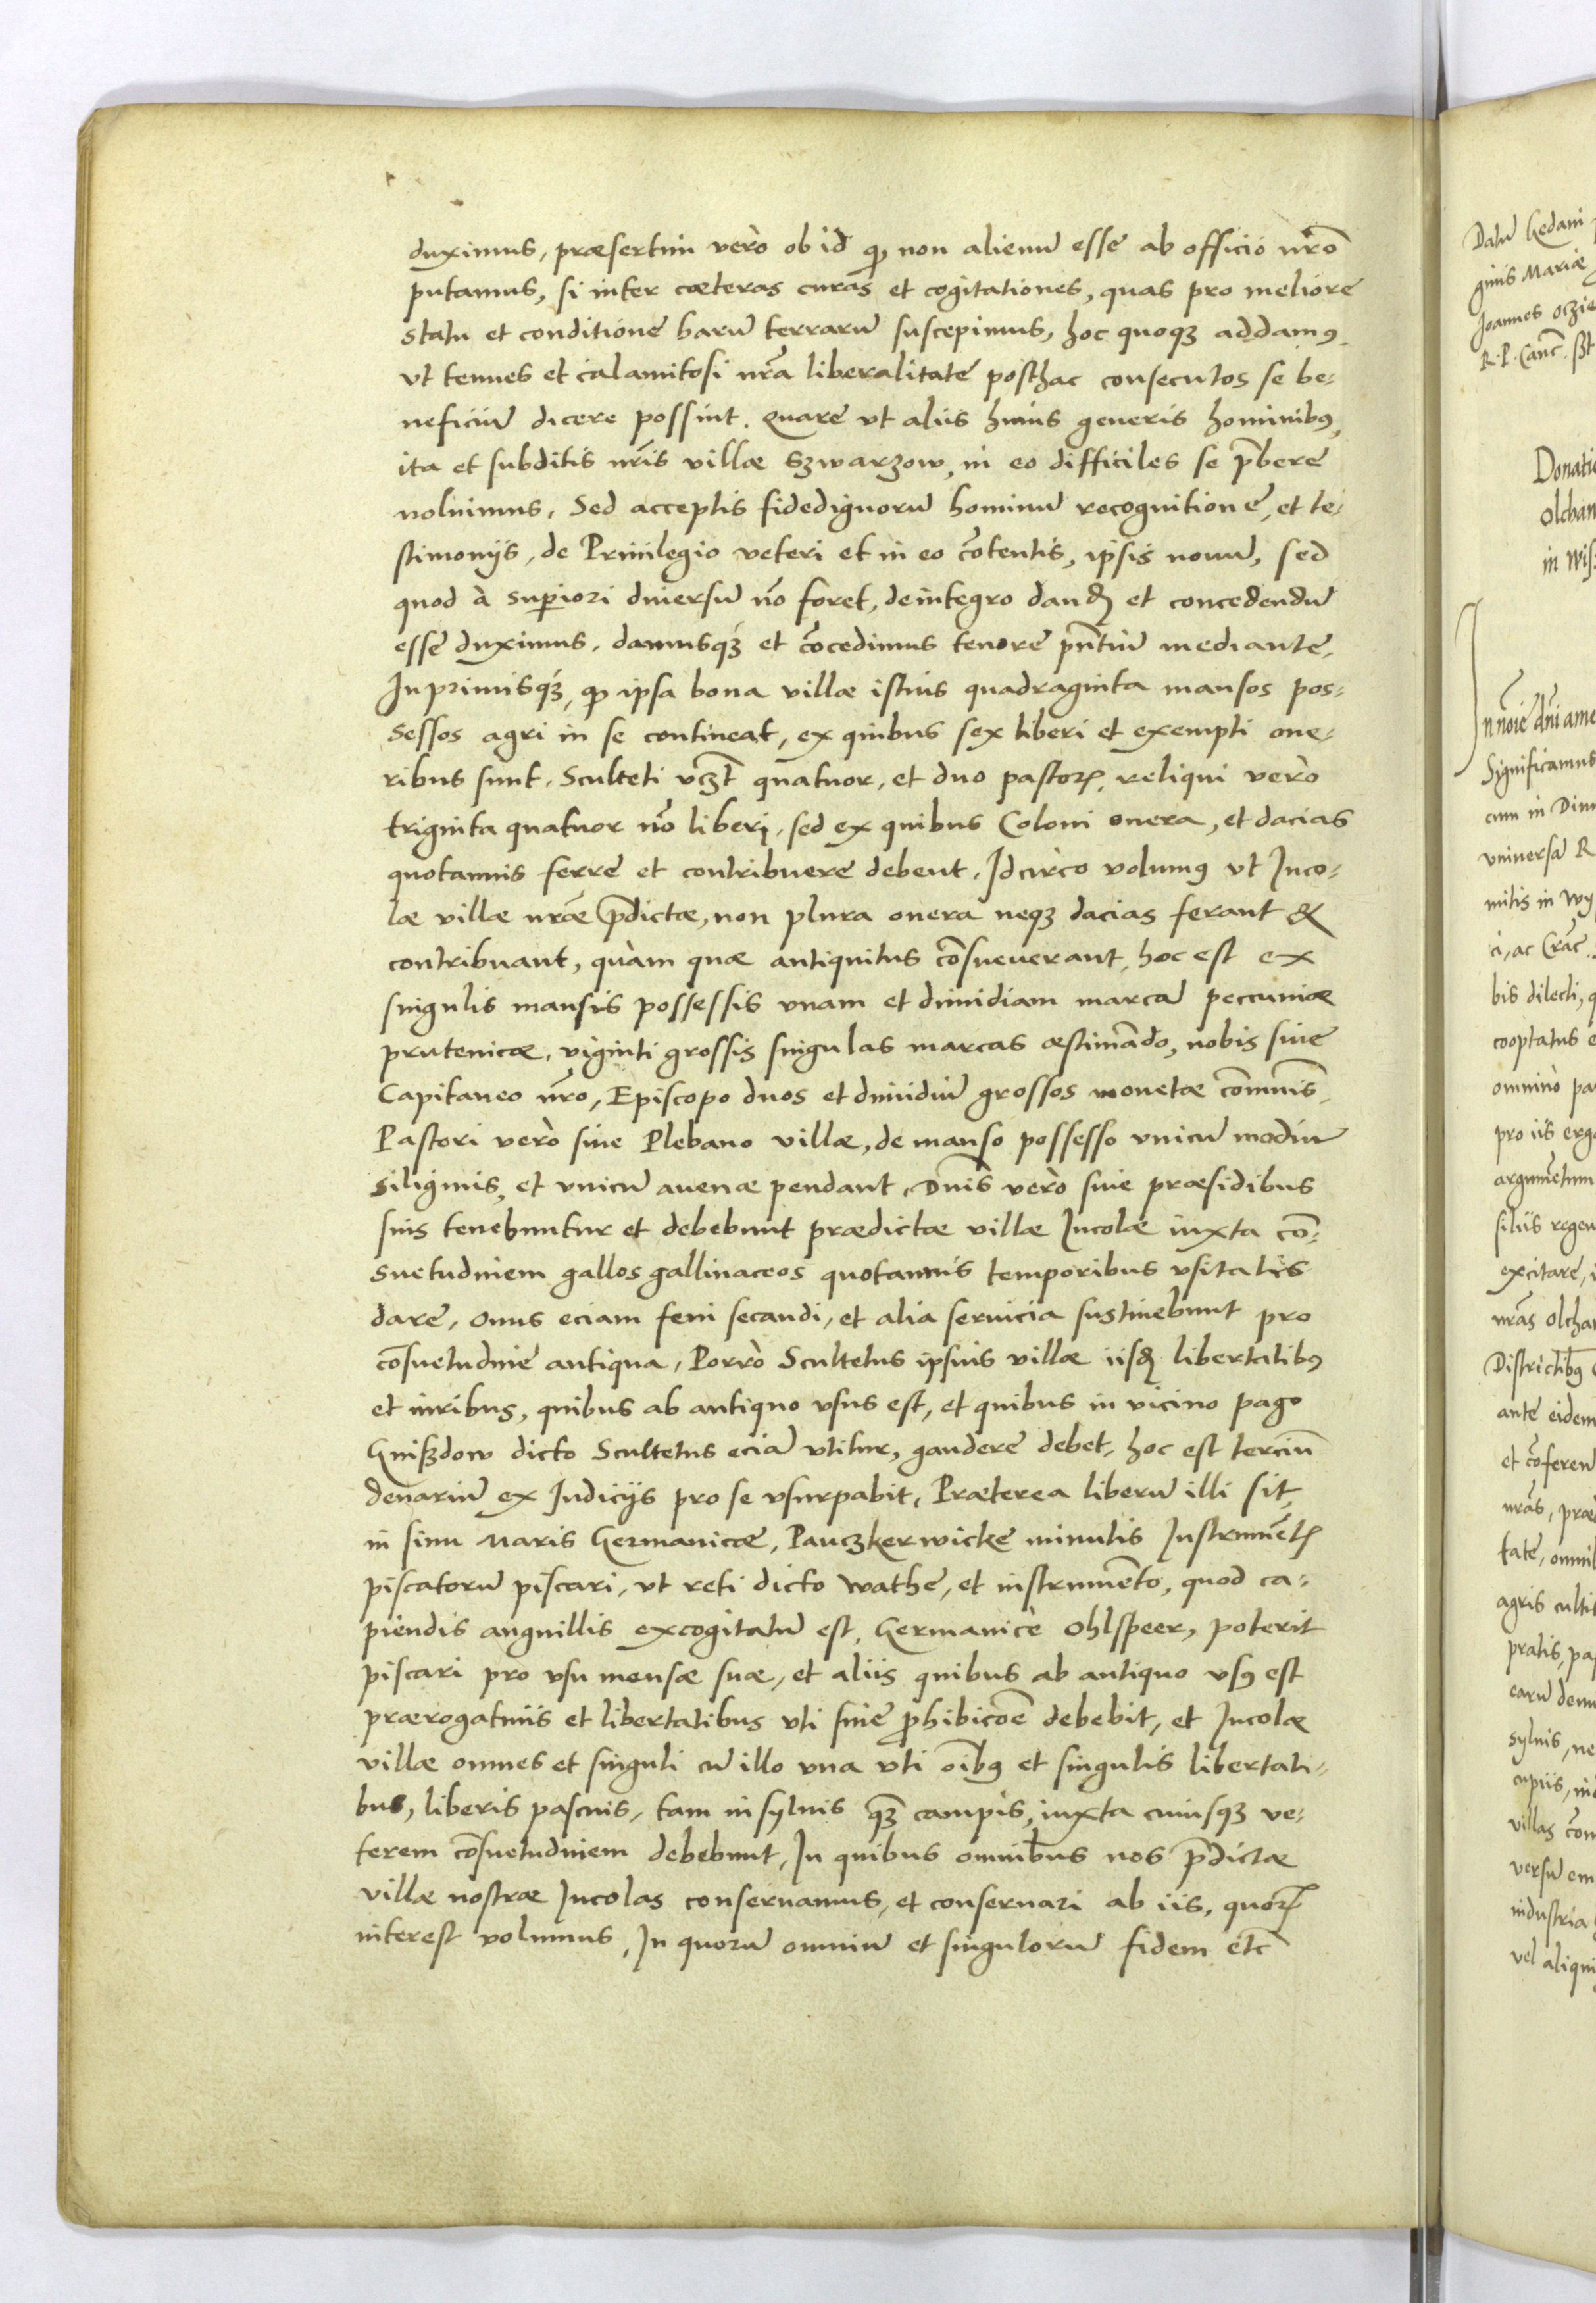 duximus, præsertim verò ob id qȝ non alienū esse ab officio nrō
putamus, si inter cæteras curas et cogitationes, quas pro meliore
statu et conditione harū terrarū suscepimus, hoc quoqȝ addamꝰ
vt tenues et calamitosi nrā liberalitate posthac consecutos se be-
neficiū dicere possint. Quare vt aliis huius generis hominibꝰ,
ita et subditis nrīs villæ Szwarzow, in eo difficiles se p̄bere
noluimus, Sed acceptis fidedignorū hominū recognitione, et te-
stimonijs, de Priuilegio veteri et in eo cōtentis, ipsis nouū, sed
quod à superiori diuersū nō foret, deintegro dandū et concedendū
esse duximus, damusqȝ et cōcedimus tenore pn̄tiū mediante,
Inprimisqȝ, qȝ ipsa bona villæ istius quadraginta mansos pos-
sessos agri in se contineat, ex quibus sex liberi et exempti one-
ribus sunt, Sculteti vczt quatuor, et duo pastorꝭ, reliqui verò
triginta quatuor nō liberi, sed ex quibus Coloni onera, et dacias
quotannis ferre et contribuere debent, Idcirco volumꝰ vt Inco-
læ villæ nrāe p̄dictæ, non plura onera neqȝ dacias ferant &
contribuant, quàm quæ antiquitus cōsueuerant, hoc est ex
singulis mansis possessis vnam et dimidiam marcā peccuniæ
prutenicæ, viginti grossis singulas marcas æstimādo, nobis siue
Capitaneo nrō, Episcopo duos et dimidiū grossos monetæ cōmunis,
Pastori verò siue Plebano villæ, de manso possesso vnicū modiū
siliginis, et vnicū auenæ pendant, Dnīs verò siue præsidibus
suis tenebuntur et debebunt prædictæ villæ Incolæ iuxta cō-
suetudinem gallos gallinaceos quotannis temporibus vsitatis
dare, Onus eciam feni secandi, et alia seruicia sustinebunt pro
cōsuetudine antiqua, Porrò Scultetus ipsius villæ iisdē libertatibꝰ
et iuribus, quibus ab antiquo vsus est, et quibus in vicino pago
Gnißdow dicto Scultetus eciā vtitur, gaudere debet, hoc est terciū
denariū ex Iudicijs pro se vsurpabit, Præterea liberū illi sit,
in sinu Maris Germanicæ, Pauczkerwicke minutis Instrumētꝭ
piscatorū piscari, vt reti dicto wathe, et instrumēto, quod ca-
piendis anguillis excogitatū est, Germanicè Ohlspeer, poterit
piscari pro vsu mensæ suæ, et aliis quibus ab antiquo vsꝰ est
prærogatiuis et libertatibus vti siue ꝓhibicōe debebit, et Incolæ
villæ omnes et singuli cū illo vna vti oībꝰ et singulis libertati-
bus, liberis pascuis, tam in syluis qȝ campis, iuxta cuiusqȝ ve-
terem cōsuetudinem debebunt, In quibus omnibus nos p̄dictæ
villæ nostræ Incolas conseruamus, et conseruari ab iis, quorꝭ
interest volumus, In quorū omniū et singulorū fidem etc̄

Datū Gedani
ginis Mariæ
Joannes Oczie
R. P. Canc. sst

Donatio
Olchan
in Wis

In noīe dn̄i ame
Significamus
cum in Dimi
vniuersā R
militis in Wy
ci, ac Crāc.
bis dilecti, q
cooptatus e
omnino pa
pro iis erga
argumētum
siliis regen
excitare,
nrās Olcha
Districtibꝰ
ante eidem
et cōferen
nrās, præ
tate, omni
agris culti
pratis, pa
earū demu
syluis, ne
cupiis, in
villas cōm
versū em
industria
vel aliqui